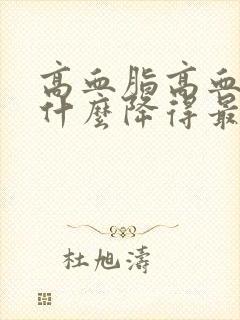 高血脂高血
什麼降得最
杜旭濤